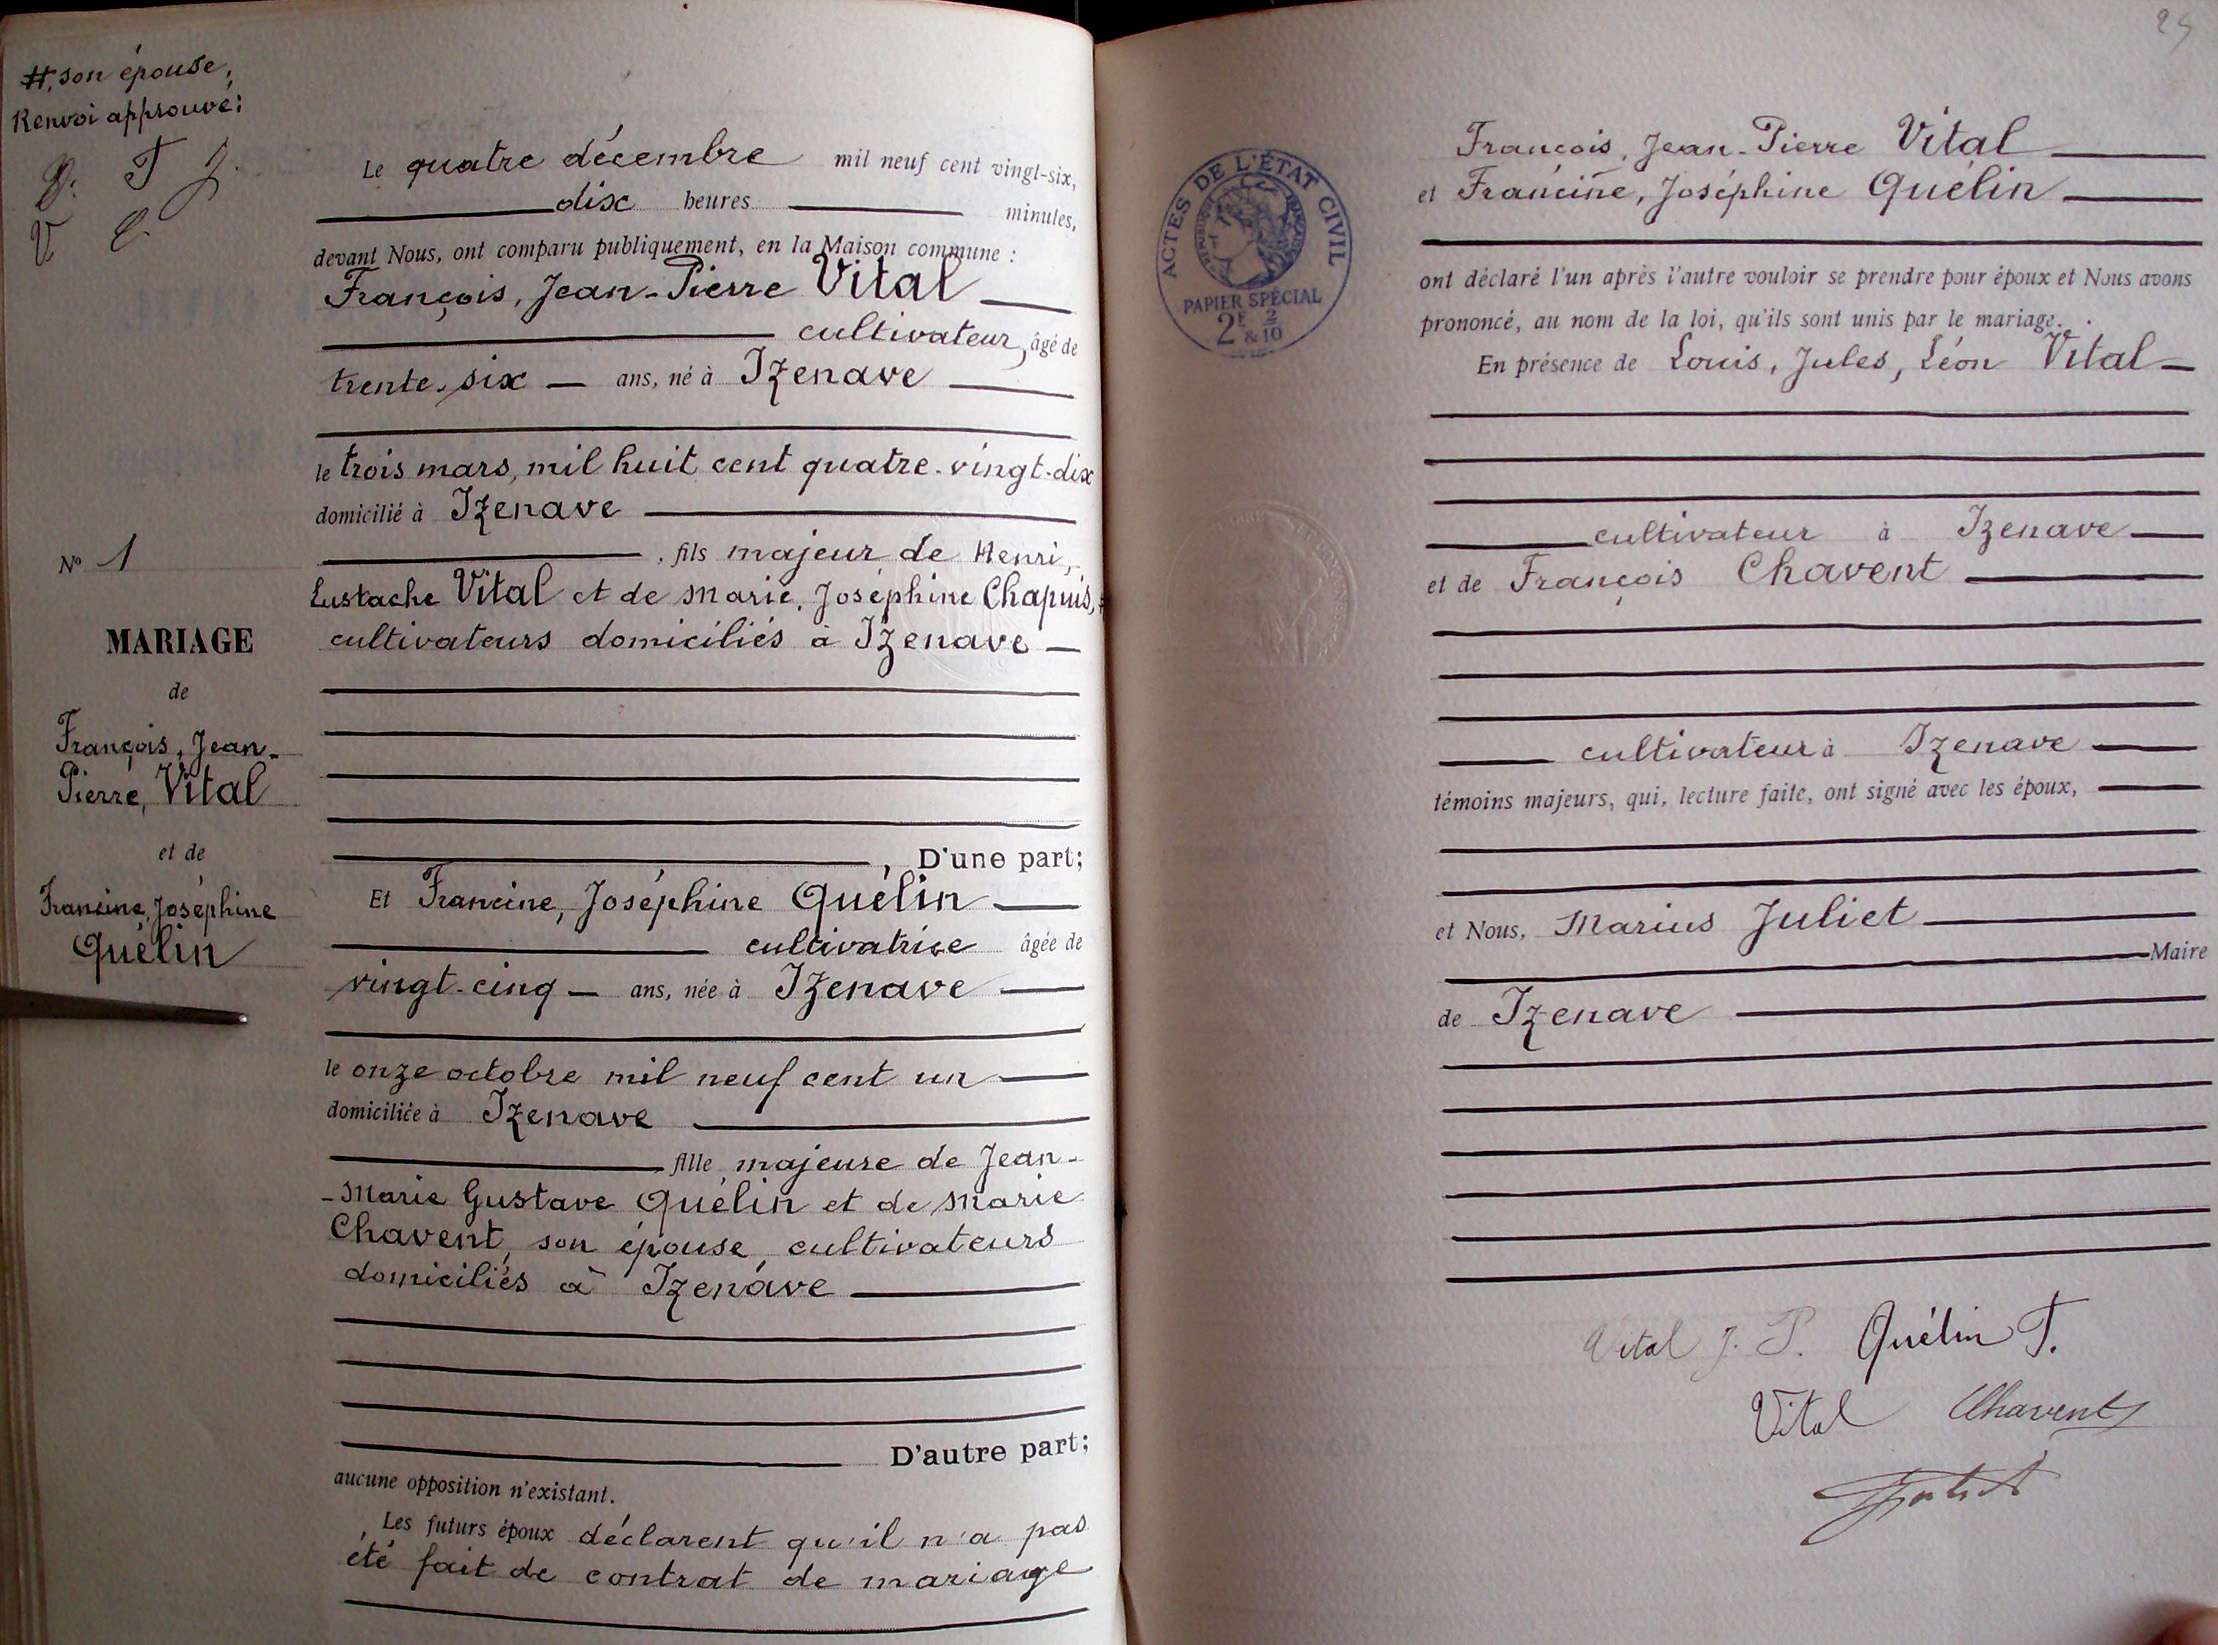 #, son épouse,
Renvoi approuvé:
Le quatre décembre mil neuf cent vingt-six,
dix heures minutes,
devant Nous, ont comparu publiquement, en la Maison commune :
François, Jean-Pierre Vital
cultivateur, âgé de
trente-six ans, né à Izenave
le trois mars, mil huit cent quatre-vingt-dix
domicilié à Izenave
, fils majeur de Henri,
Eustache Vital et de Marie, Joséphine Chapuis, #
cultivateurs domiciliés à Izenave
No 1
MARIAGE
de
François, Jean-
Pierre, Vital
et de
Francine, Joséphine
Quélin
, D'une part;
Et Francine, Joséphine Quélin
cultivatrice âgée de
vingt-cinq ans, née à Izenave
le onze octobre mil neuf cent un
domiciliée à Izenave
fille majeure de Jean-
-Marie Gustave Quélin et de Marie
Chavent, son épouse cultivateurs
domiciliés à Izenave
D'autre part;
aucune opposition n'existant.
Les futurs époux déclarent qu'il n'a pas
été fait de contrat de mariage
ACTES DE L'ÉTAT CIVIL
PAPIER SPÉCIAL
2F 2
& 10
François, Jean-Pierre Vital
et Francine, Joséphine Quélin
ont déclaré l'un après l'autre vouloir se prendre pour époux et Nous avons
prononcé, au nom de la loi, qu'ils sont unis par le mariage.
En présence de Louis, Jules, Léon Vital
cultivateur à Izenave
et de François Chavent
cultivateur à Izenave
témoins majeurs, qui, lecture faite, ont signé avec les époux,
et Nous, Marius Juliet
Maire
de Izenave
Vital J. P. Quélin F.
Vital Chavent